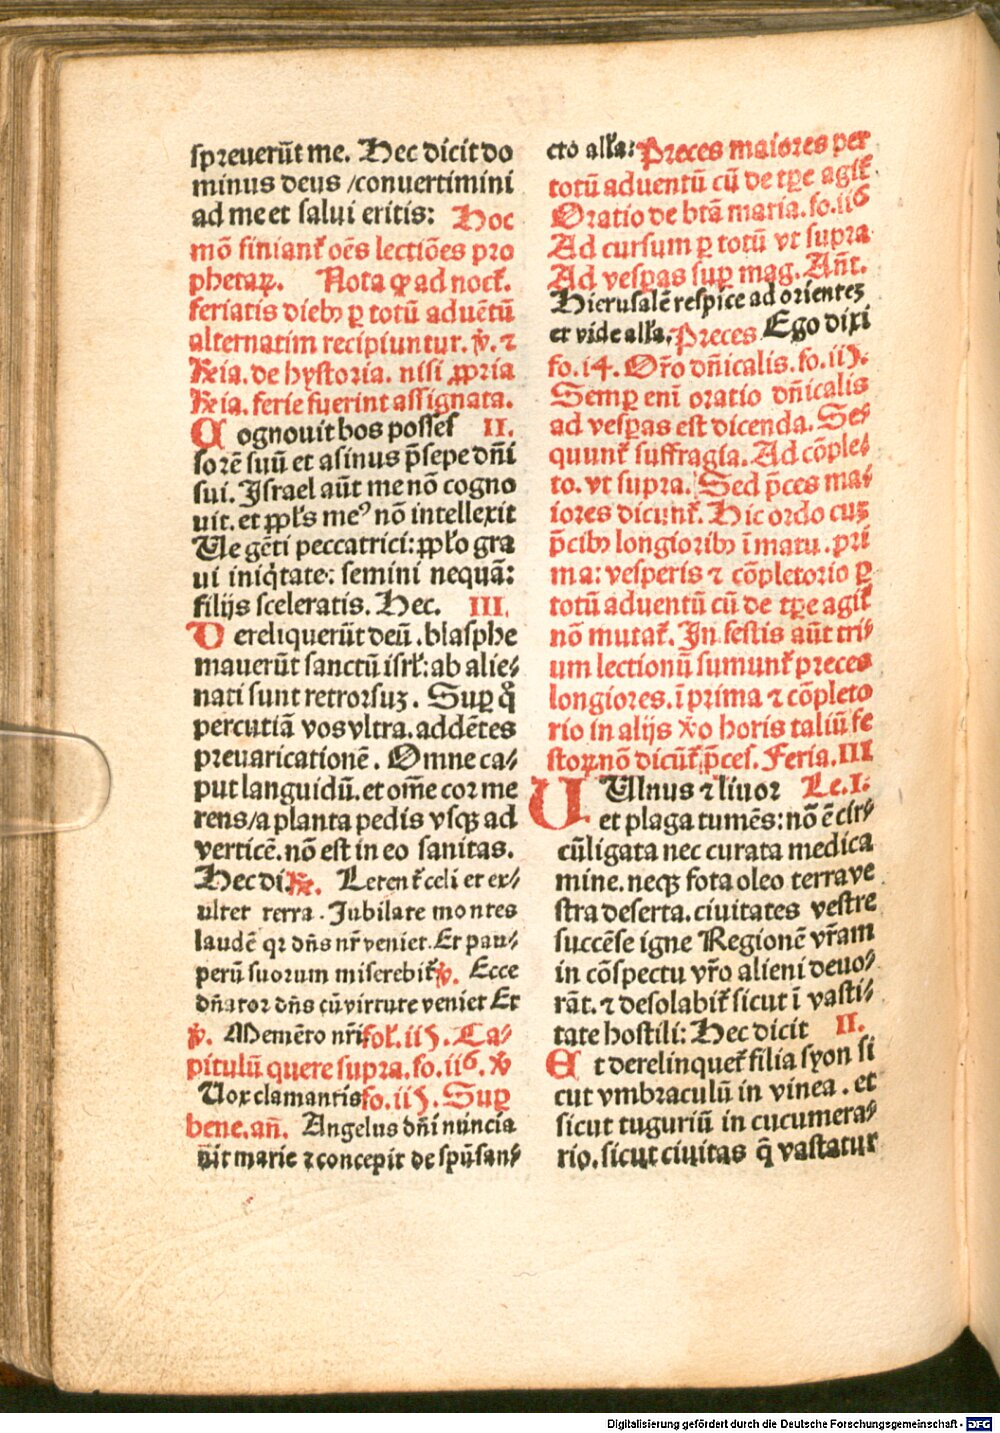 spreuerūt me. Hec dicit do
minus deus /conuertimini
ad me et salui eritis: Hoc
mō finiant᷑ oēs lectiōes pro
phetaꝝ. Nota ꝙ ad noct᷑.
feriatis diebꝫ ꝑ totū aduētū
alternatim recipiuntur. ꝟ. ⁊
℞ia. de hystoria. nisi ꝓpria
℞ia. ferie fuerint assignata.
Cognouit bos posses II.
sorē suū et asinus p̄sepe dn̄i
sui. Israel aūt me nō cogno
uit. et ꝓpl's meꝰ nō intellexit
Ve gēti peccatrici: ꝓpl'o gra
ui iniq̇tate: semini nequā:
filijs sceleratis. Hec. III.
Dereliquerūt deū . blasphe
mauerūt sanctū isrl': ab alie⸗
nati sunt retrorsuꝫ . Suꝑ q̊
percutiā vos vltra. addētes
preuaricationē . Omne ca⸗
put languidū. et om̄e cor me
rens/a planta pedis vsqꝫ ad
verticē. nō est in eo sanitas.
Hec di ℞. Letent᷑ celi et ex⸗
ultet terra . Jubilate montes
laudē qꝛ dn̄s nr̄ veniet. Et pau⸗
perū suorum miserebit᷑ ꝟ. Ecce
dn̄ator dn̄s cū virtute veniet Et
ꝟ. Memēto nr̄i fol'. ii5. Ca⸗
pitulū quere supra. fo. ii6. ꝟ
Vox clamantis fo. ii5. Suꝑ
bene. an̄. Angelus dn̄i nuncia
uit marie ⁊ concepit de spū san⸗
cto all'a: Preces maiores per
totū aduentū cū de tꝑe agit᷑.
Oratio de btā maria. fo. ii6
Ad cursum ꝑ totū vt supra
Ad vesꝑas suꝑ mag. An̄t.
Hierusalē respice ad orienteꝫ
et vide all'a. Preces Ego dixi
fo. i4. Or̄o dn̄icalis. fo. ii5.
Semꝑ eni oratio dn̄icalis
ad vesꝑas est dicenda. Se⸗
quunt᷑ suffragia. Ad cōple⸗
to. vt supra. Sed p̄ces mai
iores dicunt᷑. Hic ordo cuꝫ
p̄cibꝫ longioribꝫ ī matu. pri
ma: vesperis ⁊ cōpletorio ꝑ
totū aduentū cū de tꝑe agit᷑
nō mutat᷑. In festis aūt tri⸗
um lectionū sumunt᷑ preces
longiores. ī prima ⁊ cōpleto
rio in alijs ꝟo horis taliū fe
stoꝝ nō dicūt᷑ p̄ces. Feria. III
VUlnus ⁊ liuor Le. I.
et plaga tumēs: nō ē cir⸗
cūligata nec curata medica
mine. neqꝫ fota oleo terra ve
stra deserta. ciuitates vestre
succēse igne Regionē vr̄am
in cōspectu vr̄o alieni deuo⸗
rāt. ⁊ desolabit᷑ sicut ī vasti⸗
tate hostili: Hec dicit II.
Et derelinquet᷑ filia syon si
cut vmbraculū in vinea . et
sicut tuguriū in cucumera⸗
rio. sicut ciuitas q̄ vastatur
Digitalisierung gefördert durch die Deutsche Forschungsgemeinschaft - DFG